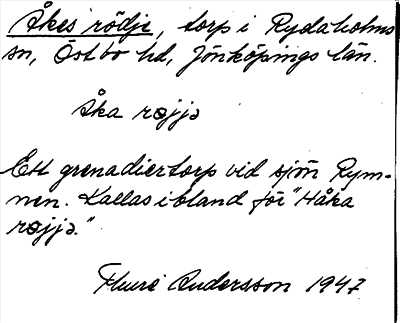 Åkes rödje, torp i Rydaholms
sn, Östbo hd, Jönköpings län.
Åka ræjjə
Ett grenadiertorp vid sjön Rym-
nen. Kallas ibland för "Håka
ræjjə."
Thure Andersson 1947